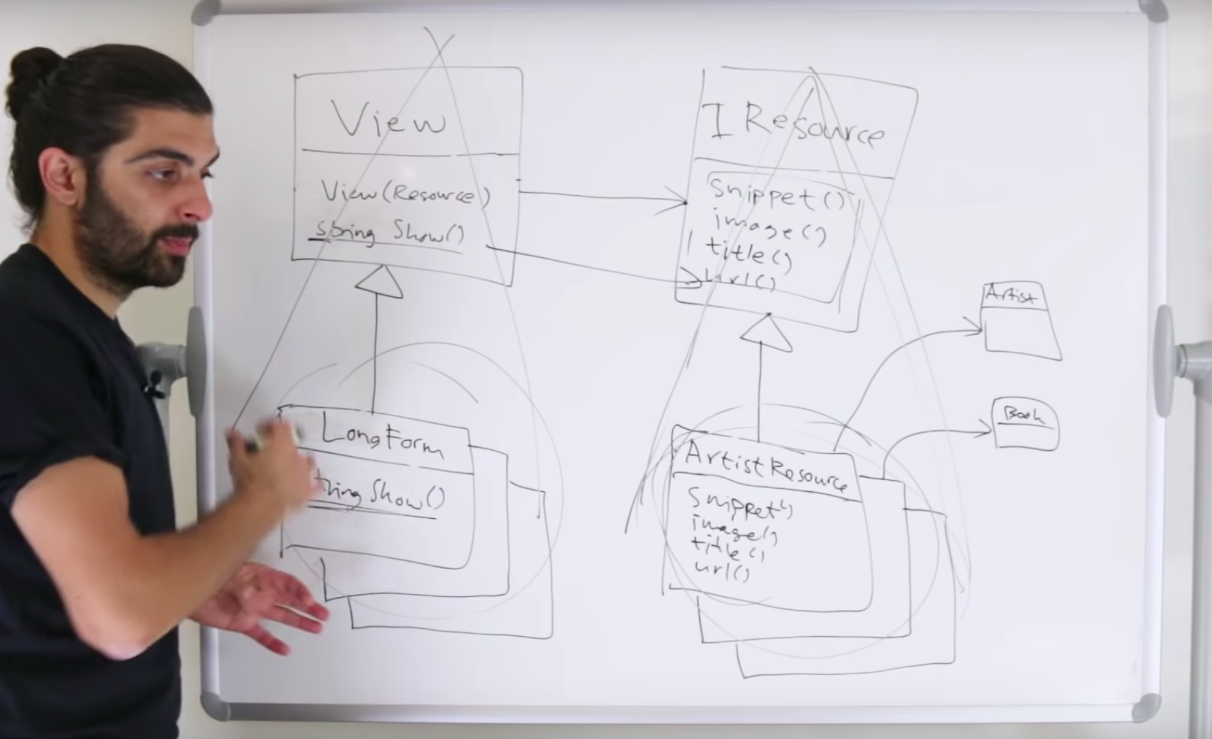 View
View(Resource)
string Show()
I Resource
Snippet()
image()
title()
url()
Artist
Book
LongForm
tring Show()
ArtistResource
Snippet()
image()
title()
url()